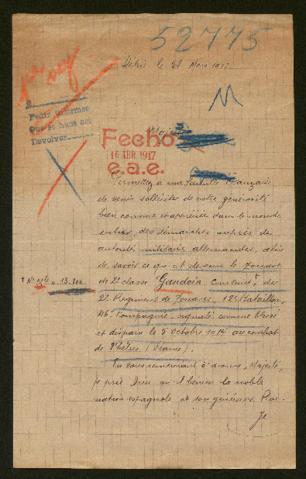 52775
le 21 Mars 1917
Fecho
16 ABR 1917
e.a.e.
Permettez à une famille française
de venir solliciter de votre générosité
bien connue et appréciée dans le monde
entier, des démarches auprès de
autorités militaires allemandes, afin
de savoir ce qu'est devenu le Zouave
de 2e classe "Gandoin du
2e Régiment de Zouaves, 125 Bataillon,
Compagnie, signalé comme blessé
et disparu le 5 octobre 1914 au combat
de (France).
En vous remerciant d'avance, Majesté,
je prie Dieu qu'il bénisse la noble
nation espagnole et son généreux Roi.
Je